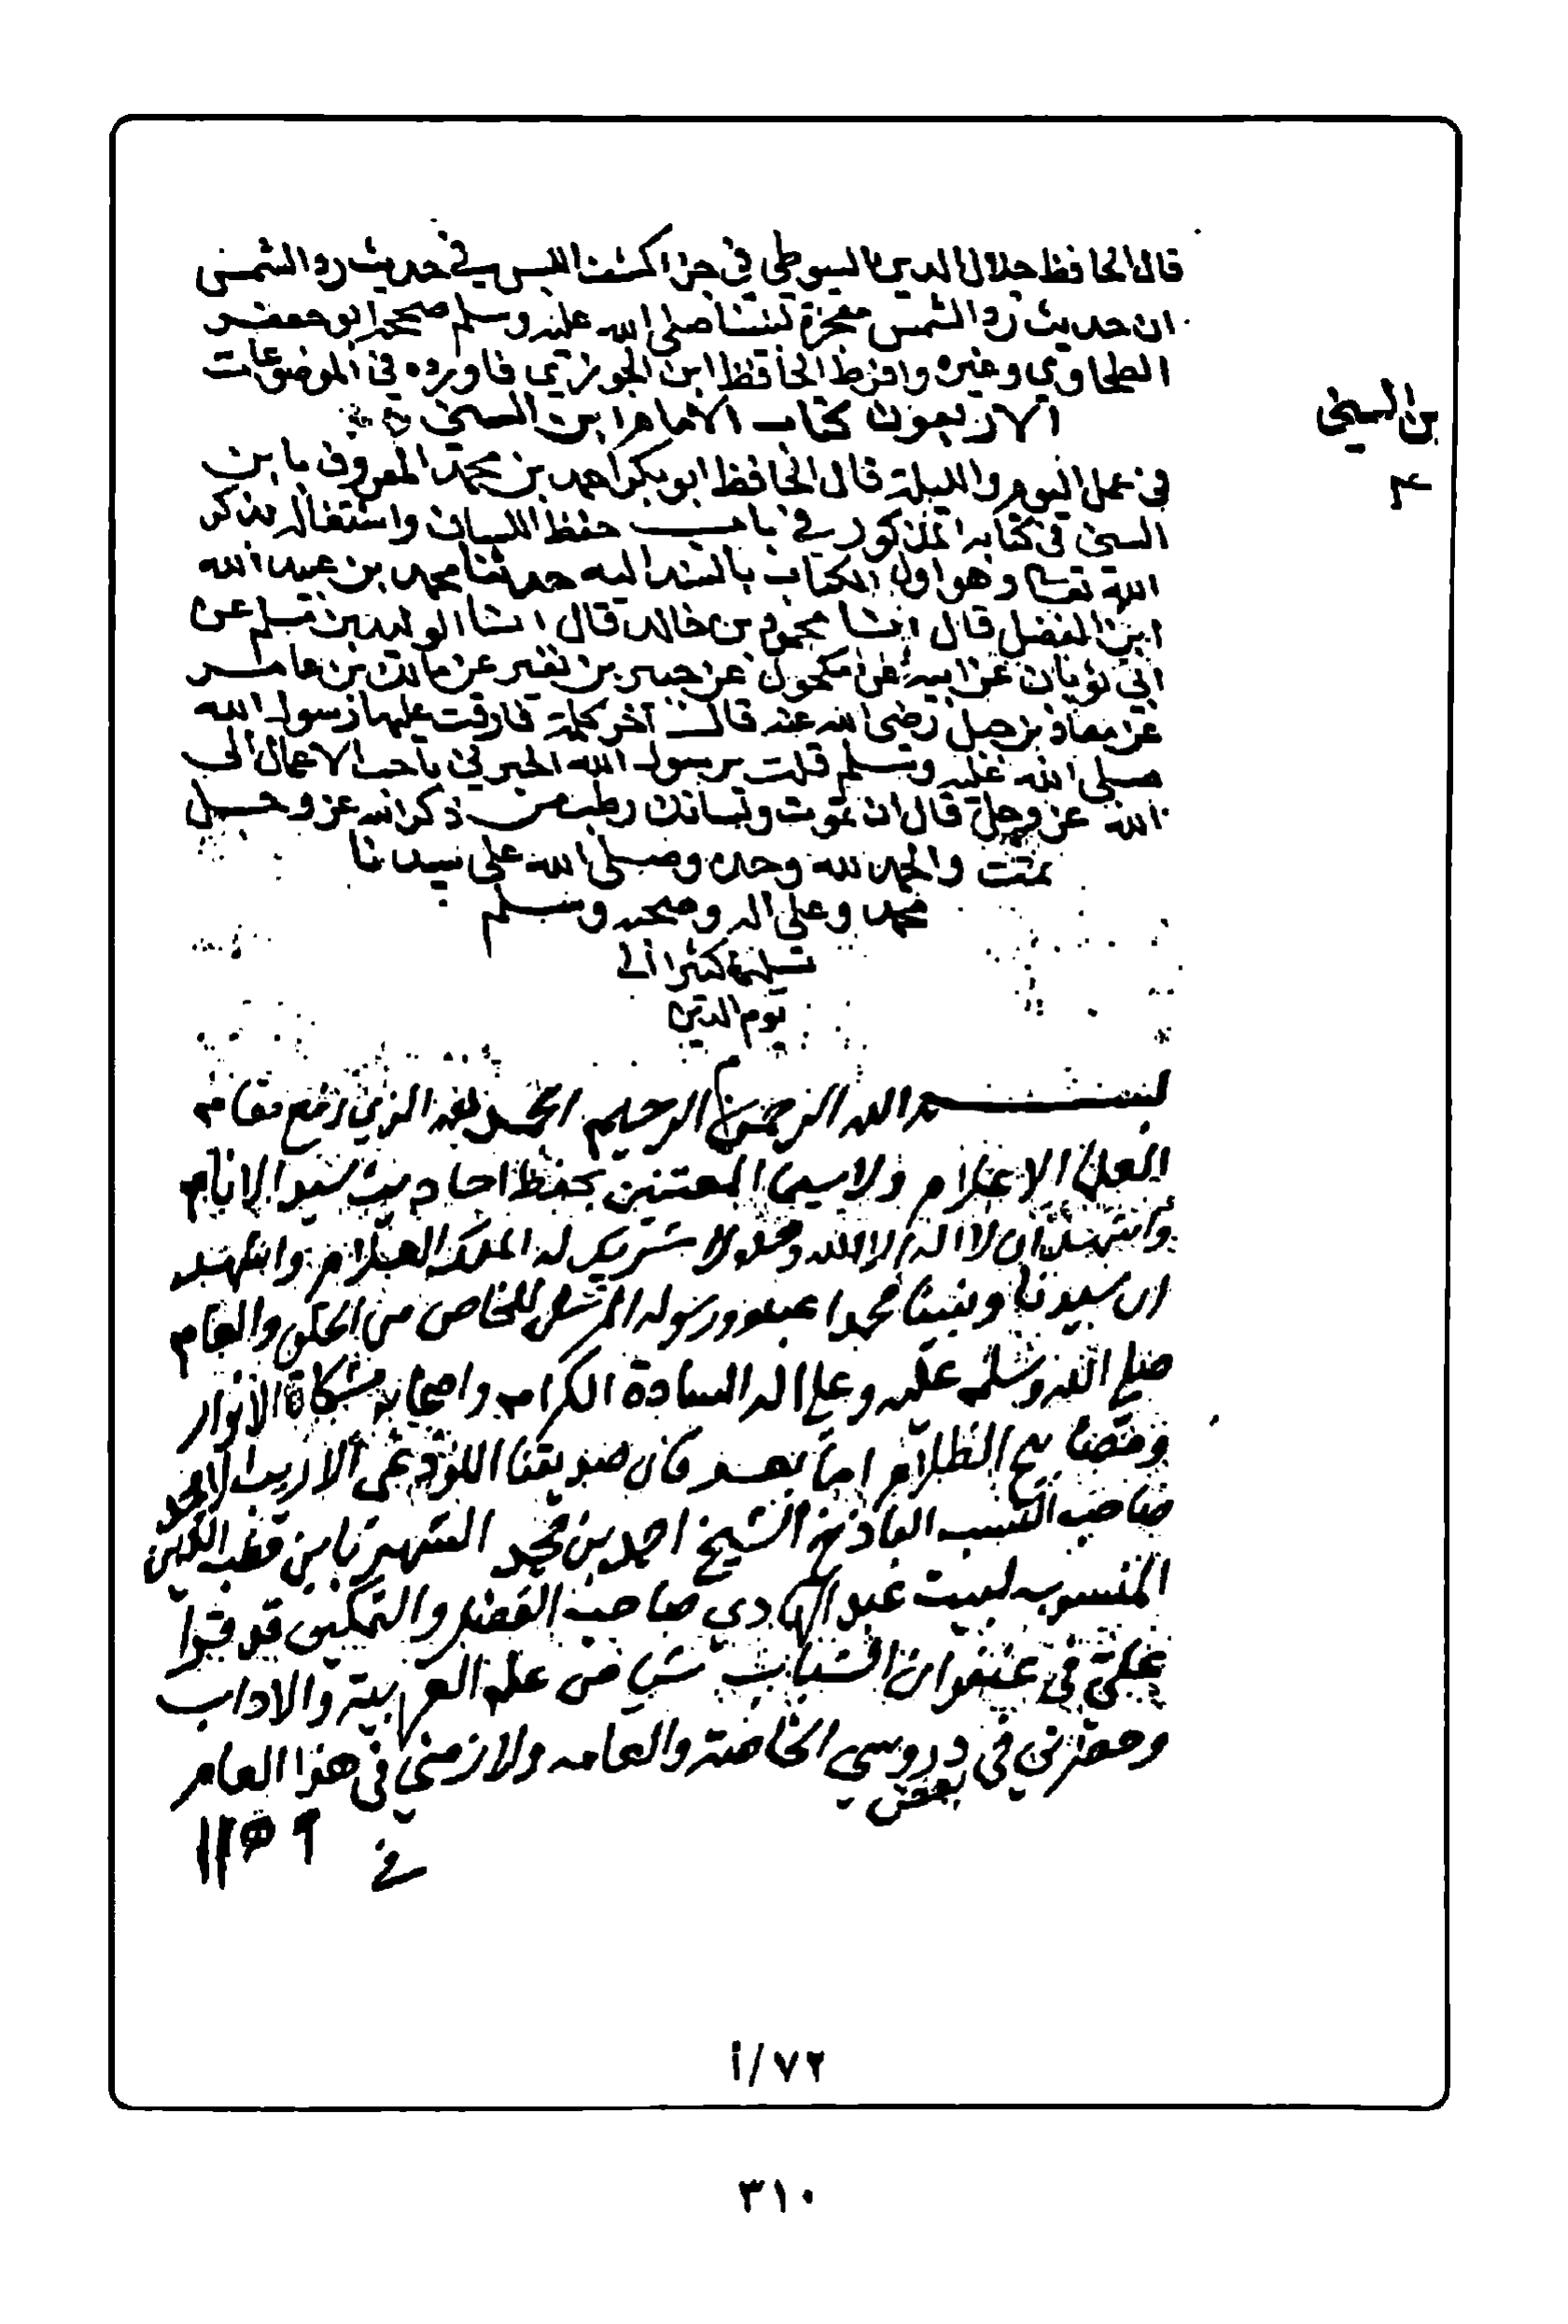 قال الحافظ جلال الدين السيوطي في جزء كشف اللبس في حديث رد الشمس
ان حديث رد الشمس معجزة لنبينا صلى الله عليه وسلم صححه ابو جعفر
الطحاوي وغيره وافرط الحافظ ابن الجوزي فاورده في الموضوعات
الاربعون كتاب الامام ابن السني
بن السني
في عمل اليوم والليلة قال الحافظ ابو بكر احمد بن محمد المعروف بابن
السني في كتابه المذكور في باب حفظ اللسان واشتغاله بذكر
الله تعالى وهو اول الكتاب بالسند اليه حدثنا محمد بن عبيد الله
ابن الفضل قال انبانا محمود بن خالد قال انبانا الوليد بن مسلم عن
ابي ثوبان عن ابيه عن مكحول عن جبير بن نفير عن مالك بن يخامر
عن معاذ بن جبل رضي الله عنه قال آخر كلمة فارقت عليها رسول الله
صلى الله عليه وسلم قلت يرسول الله اخبرني باحب الاعمال الى
الله عز وجل قال ان تموت ولسانك رطب من ذكر الله عز وجل
تمت والحمد لله وحده وصلى الله على سيدنا
محمد وعلى اله وصحبه وسلم
تسليما كثيرا الى
يوم الدين
بسم الله الرحمن الرحيم الحمد لله الذي رفع مقام
العلماء الاعلام ولا سيما المعتنين بحفظ احاديث سيد الانام
واشهد ان لا اله الا الله وحده لا شريك له الملك العلام واشهد
ان سيدنا ونبينا محمدا عبده ورسوله المرسل للخاص من الخلق والعام
صلى الله وسلم عليه وعلى اله السادة الكرام واصحابه مشكاة الانوار
ومصابيح الظلام اما بعد فان صديقنا اللوذعي الاريب الامجد
صاحب النسب الباذخ الشيخ احمد بن محمد الشهير بابن قطب الدين
المنسوب لبيت عبد الهادي صاحب الفضل والتمكين قد قرا
علي في عنفوان الشباب شي من علم العربية والاداب
وحضرني في دروسي الخاصة والعامه ولازمني في هذا العام
بعض
في ١١٥٩
٧٢/أ
٣١٠